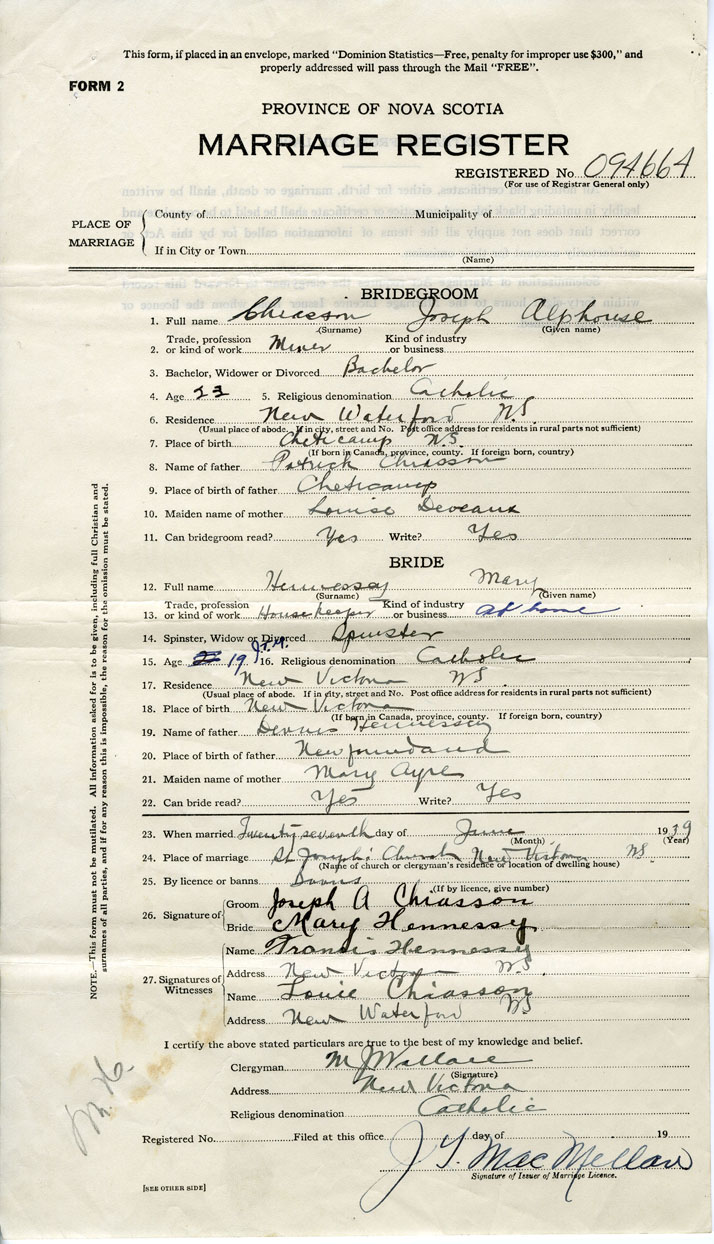 This form, if placed in an envelope, marked "Dominion Statistics—Free, penalty for improper use $300," and
properly addressed will pass through the Mail "FREE".
FORM 2
PROVINCE OF NOVA SCOTIA
MARRIAGE REGISTER
REGISTERED No. 094664
(For use of Registrar General only)
PLACE OF MARRIAGE
County of Municipality of
If in City or Town
(Name)
BRIDEGROOM
1. Full name Chiasson Joseph Alphouse
(Surname) (Given name)
2. Trade, profession or kind of work Miner Kind of industry or business
3. Bachelor, Widower or Divorced Bachelor
4. Age 23 5. Religious denomination Catholic
6. Residence New Waterford N.S.
(Usual place of abode. If in city, street and No. Post office address for residents in rural parts not sufficient)
7. Place of birth Cheticamp N.S.
(If born in Canada, province, county. If foreign born, country)
8. Name of father Patrick Chiasson
9. Place of birth of father Cheticamp
10. Maiden name of mother Louise Deveaux
11. Can bridegroom read? Yes Write? Yes
BRIDE
12. Full name Hennessey Mary
(Surname) (Given name)
13. Trade, profession or kind of work Housekeeper Kind of industry or business at home
14. Spinster, Widow or Divorced Spinster
15. Age 19 J.T.M. 16. Religious denomination Catholic
17. Residence New Victoria NS
(Usual place of abode. If in city, street and No. Post office address for residents in rural parts not sufficient)
18. Place of birth New Victoria
(If born in Canada, province, county. If foreign born, country)
19. Name of father Dennis Hennessey
20. Place of birth of father Newfoundland
21. Maiden name of mother Mary Ayre
22. Can bride read? Yes Write? Yes
23. When married Twenty seventh day of June 1939
(Month) (Year)
24. Place of marriage St Joseph's Church New Victoria NS
(Name of church or clergyman's residence or location of dwelling house)
25. By licence or banns Banns
(If by licence, give number)
26. Signature of
Groom Joseph A Chiasson
Bride Mary Hennessy
27. Signatures of Witnesses
Name Francis Hennessy
Address New Victoria NS
Name Louie Chiasson
Address New Waterford NS
I certify the above stated particulars are true to the best of my knowledge and belief.
Clergyman M J Wallace
(Signature)
Address New Victoria
Religious denomination Catholic
Registered No. Filed at this office day of 19
J. T. MacMellan
Signature of Issuer of Marriage Licence.
[SEE OTHER SIDE]
NOTE.—This form must not be mutilated. All information asked for is to be given, including full Christian and
surnames of all parties, and if for any reason this is impossible, the reason for the omission must be stated.
M. H.